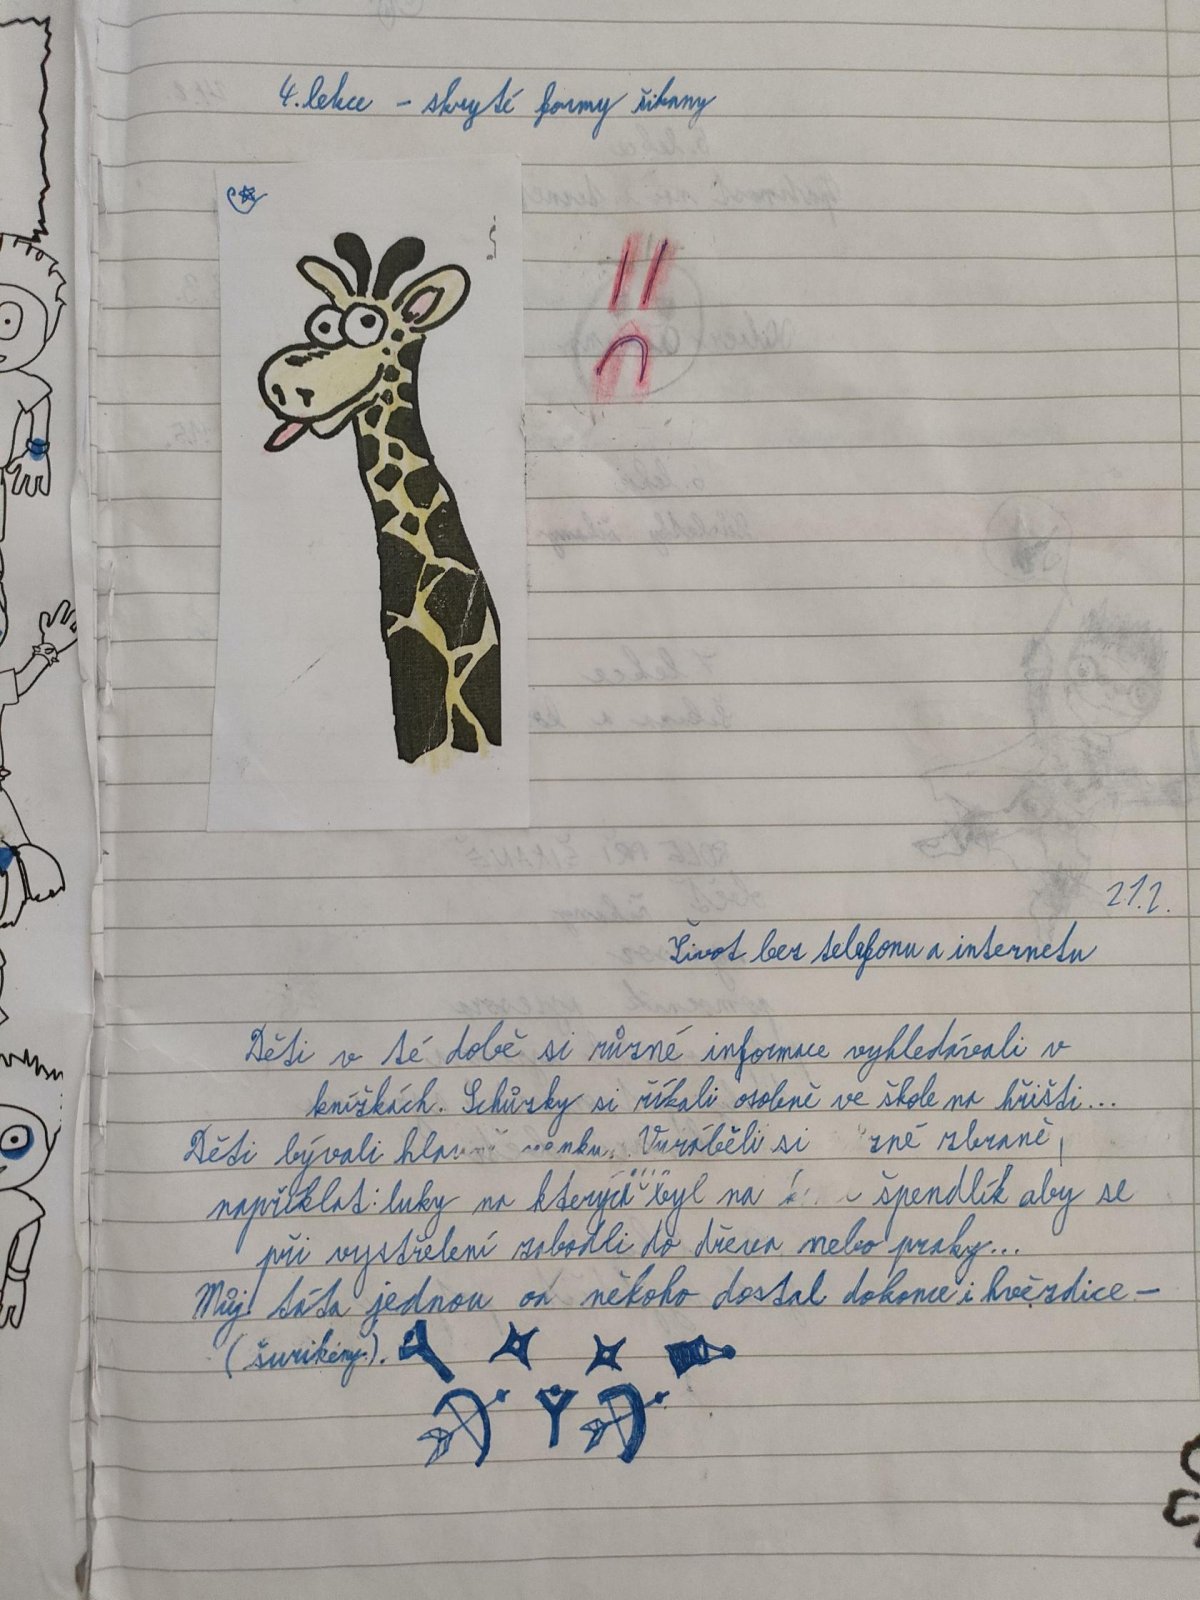 4. lekce - skryté formy šikany
21.2.
Život bez telefonu a internetu
Děti v té době si různé informace vyhledávali v
knížkách. Schůzky si říkali osobně ve škole na hřišti...
Děti bývali venku. Vyráběli si zbraně,
napříklat: luky na kterých byl na špendlík aby se
při vystřelení zabodli do dřeva nebo praky...
Můj táta jednou od někoho dostal dokonce i hvězdice -
(šurikény).